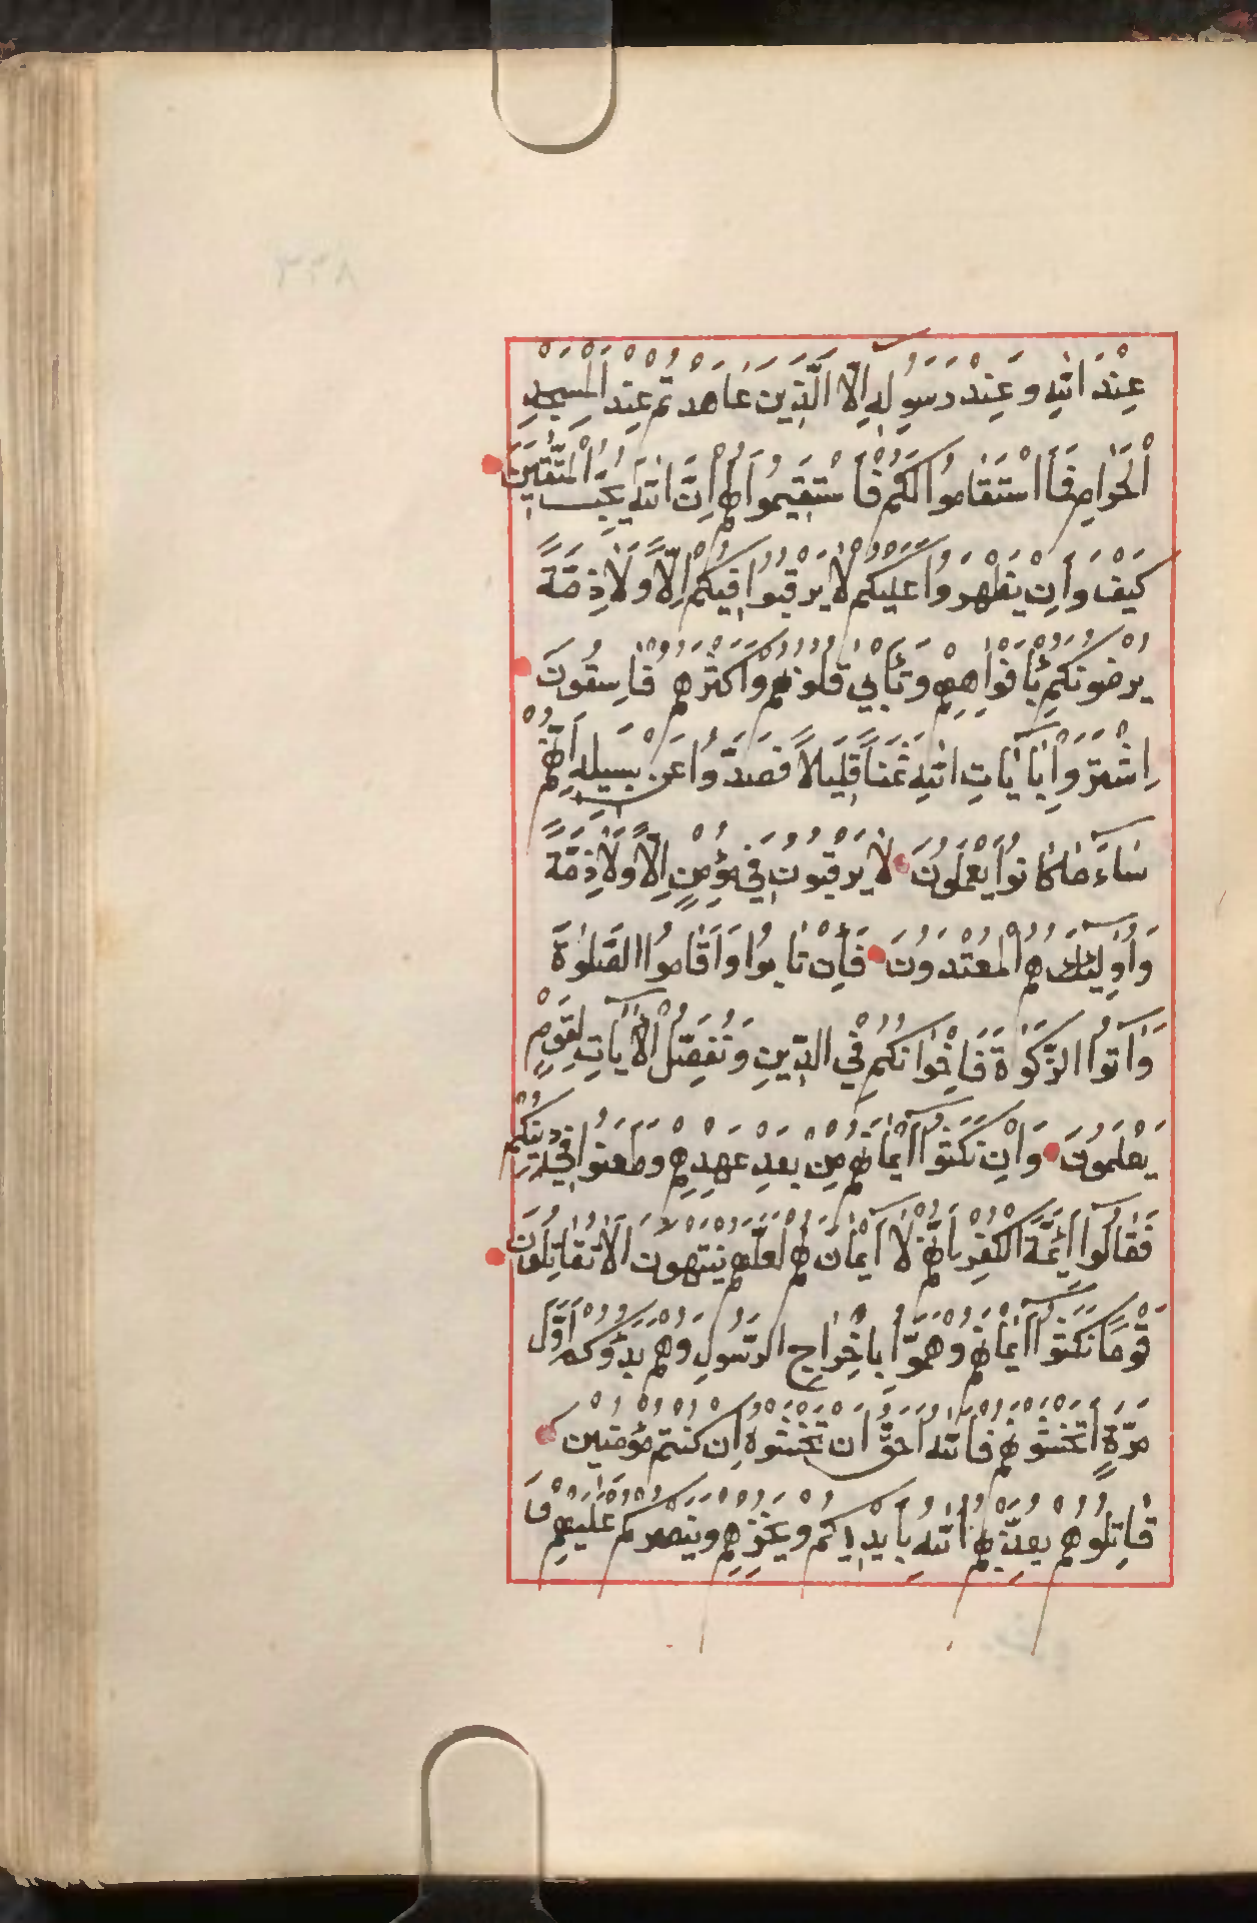 عِنْدَ اللّٰهِ وَعِنْدَ رَسُولِهِ اِلَّا الَّذِينَ عَاهَدْتُمْ عِنْدَ الْمَسْجِدِ
الْحَرَامِ فَمَا اسْتَقَامُوا لَكُمْ فَاسْتَقِيمُوا لَهُمْ اِنَّ اللّٰهَ يُحِبُّ الْمُتَّقِينَ
كَيْفَ وَاِنْ يَظْهَرُوا عَلَيْكُمْ لَا يَرْقُبُوا فِيكُمْ اِلًّا وَلَا ذِمَّةً
يُرْضُونَكُمْ بِاَفْوَاهِهِمْ وَتَأْبٰى قُلُوبُهُمْ وَاَكْثَرُهُمْ فَاسِقُونَ
اِشْتَرَوْا بِاٰيَاتِ اللّٰهِ ثَمَنًا قَلِيلًا فَصَدُّوا عَنْ سَبِيلِهِ اِنَّهُمْ
سَاۤءَ مَا كَانُوا يَعْمَلُونَ لَا يَرْقُبُونَ فِي مُؤْمِنٍ اِلًّا وَلَا ذِمَّةً
وَاُولٰۤئِكَ هُمُ الْمُعْتَدُونَ فَاِنْ تَابُوا وَاَقَامُوا الصَّلٰوةَ
وَاٰتَوُا الزَّكٰوةَ فَاِخْوَانُكُمْ فِي الدِّينِ وَنُفَصِّلُ الْاٰيَاتِ لِقَوْمٍ
يَعْلَمُونَ وَاِنْ نَكَثُوا اَيْمَانَهُمْ مِنْ بَعْدِ عَهْدِهِمْ وَطَعَنُوا فِي دِينِكُمْ
فَقَاتِلُوا اَئِمَّةَ الْكُفْرِ اِنَّهُمْ لَا اَيْمَانَ لَهُمْ لَعَلَّهُمْ يَنْتَهُونَ اَلَا تُقَاتِلُونَ
قَوْمًا نَكَثُوا اَيْمَانَهُمْ وَهَمُّوا بِاِخْرَاجِ الرَّسُولِ وَهُمْ بَدَؤُكُمْ اَوَّلَ
مَرَّةٍ اَتَخْشَوْنَهُمْ فَاللّٰهُ اَحَقُّ اَنْ تَخْشَوْهُ اِنْ كُنْتُمْ مُؤْمِنِينَ
قَاتِلُوهُمْ يُعَذِّبْهُمُ اللّٰهُ بِاَيْدِيكُمْ وَيُخْزِهِمْ وَيَنْصُرْكُمْ عَلَيْهِمْ